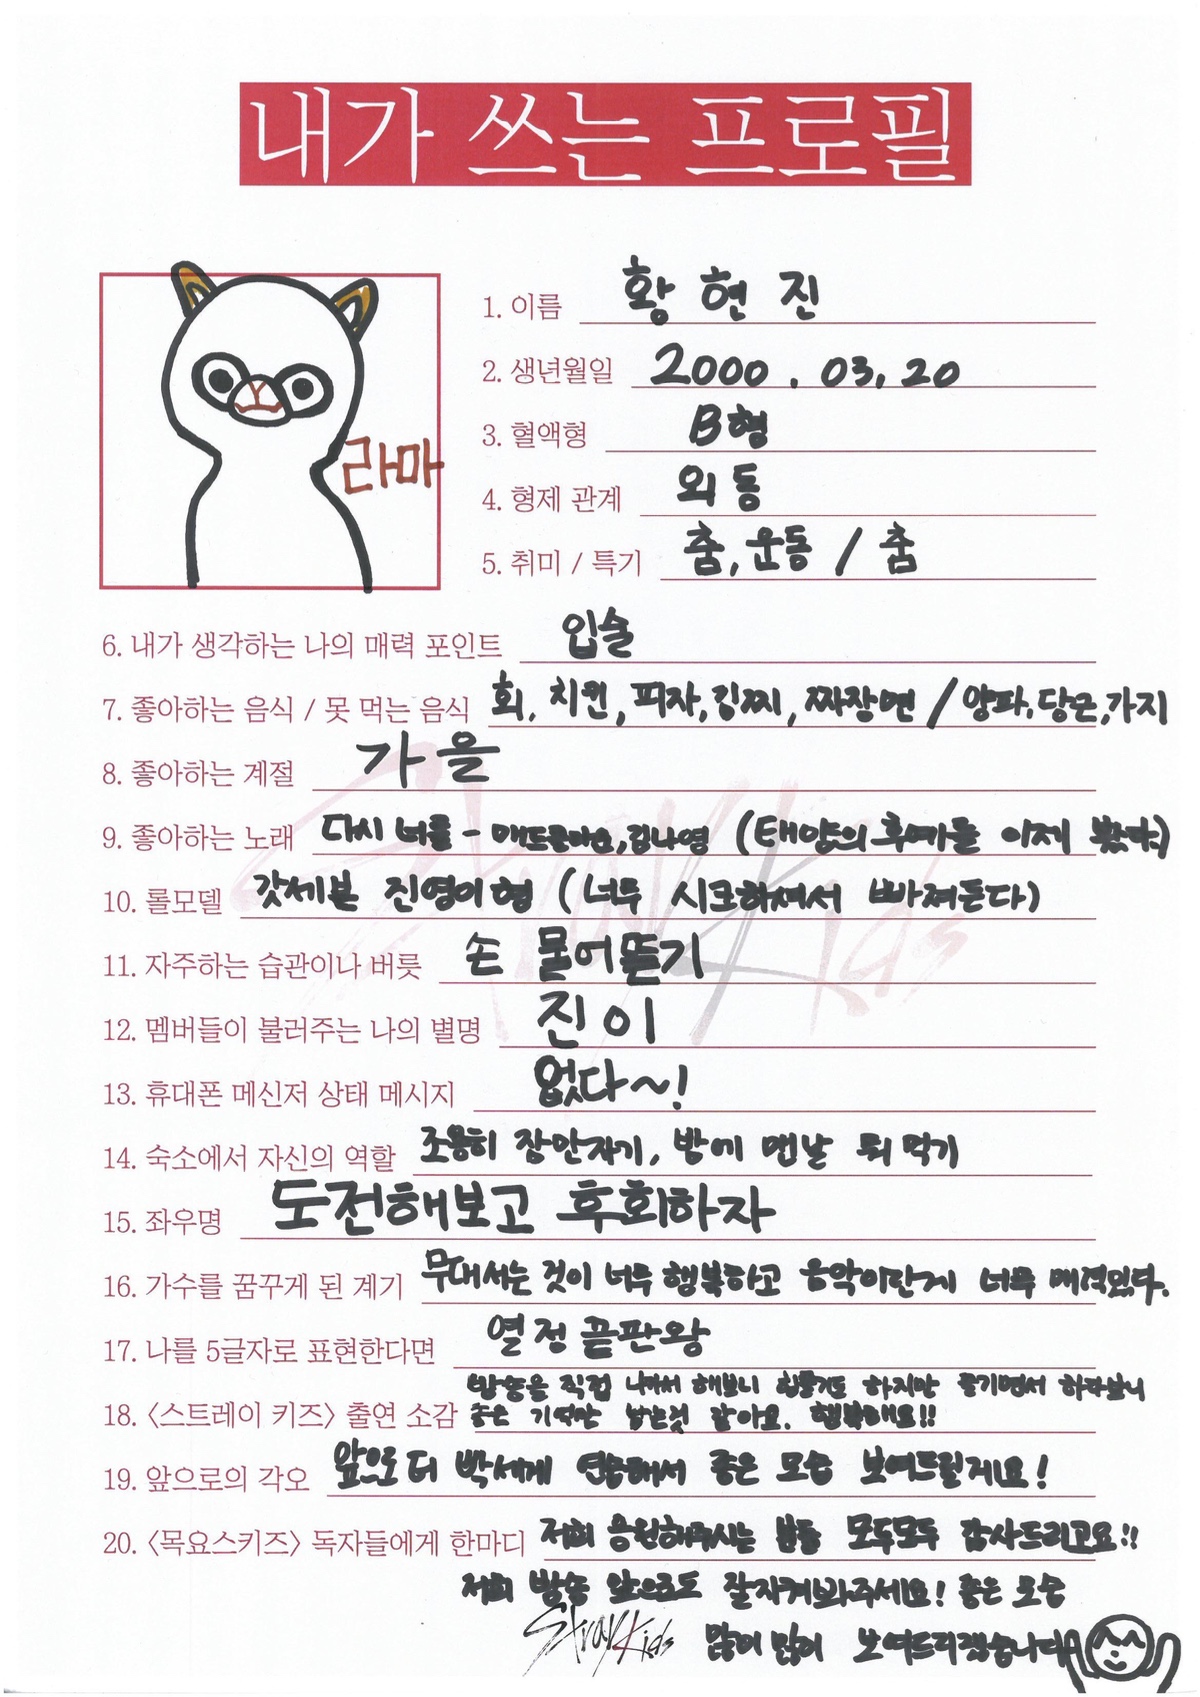 내가 쓰는 프로필
라마
1. 이름 황현진
2. 생년월일 2000. 03. 20
3. 혈액형 B형
4. 형제 관계 외동
5. 취미 / 특기 춤, 운동 / 춤
6. 내가 생각하는 나의 매력 포인트 입술
7. 좋아하는 음식 / 못 먹는 음식 회, 치킨, 피자, 김찌, 짜장면 / 양파, 당근, 가지
8. 좋아하는 계절 가을
9. 좋아하는 노래 다시 너를 - 매드클라운, 김나영 (태양의 후예를 이제 봤다;)
10. 롤모델 갓세븐 진영이형 (너무 시크하셔서 빠져든다)
11. 자주하는 습관이나 버릇 손 물어뜯기
12. 멤버들이 불러주는 나의 별명 진이
13. 휴대폰 메신저 상태 메시지 없다~!
14. 숙소에서 자신의 역할 조용히 장난치기, 밤에 맨날 뭐 먹기
15. 좌우명 도전해보고 후회하자
16. 가수를 꿈꾸게 된 계기 무대 서는 것이 너무 행복하고 음악이란게 너무 매력있다.
17. 나를 5글자로 표현한다면 열정끝판왕
방송을 직접 나와서 해보니 힘들기도 하지만 즐기면서 하다보니
18. 〈스트레이 키즈〉 출연 소감 좋은 기억만 남는것 같아요. 행복해요!!
19. 앞으로의 각오 앞으로 더 빡세게 연습해서 좋은 모습 보여드릴게요!
20. 〈목요스키즈〉 독자들에게 한마디 저희 응원해주시는 분들 모두모두 감사드리고요!!
저희 방송 앞으로도 잘 지켜봐주세요! 좋은 모습
Stray Kids 많이 많이 보여드리겠습니다